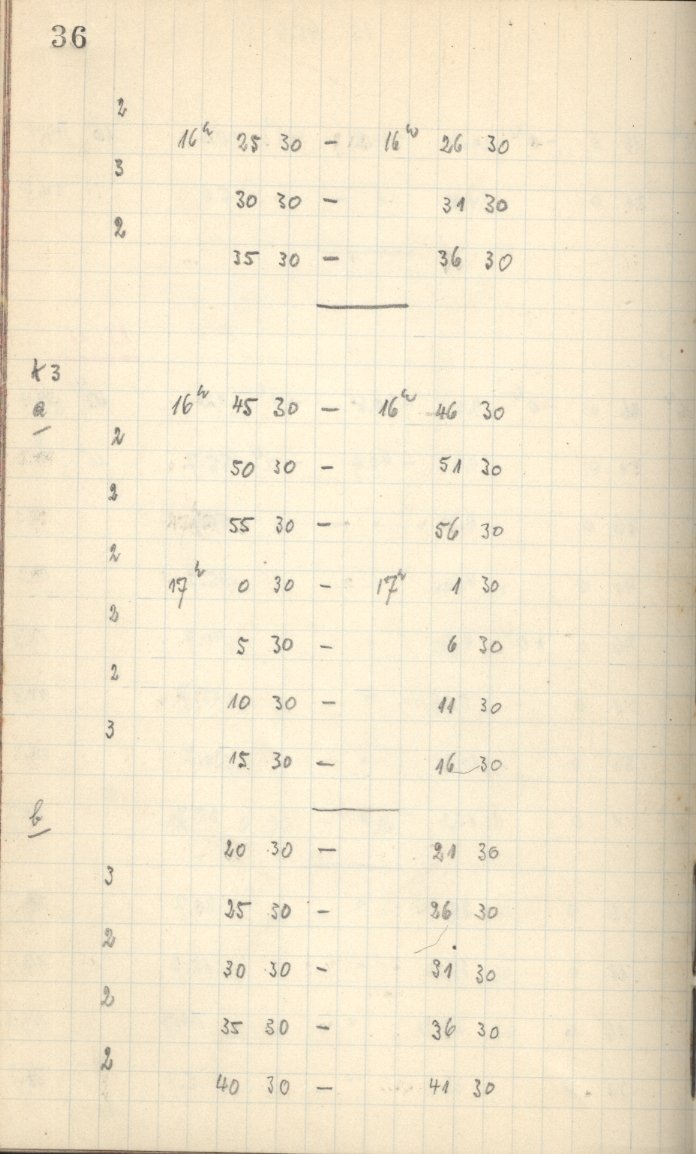 36
2
16h 25 30 – 16h 26 30
3
30 30 – 31 30
2
35 30 – 36 30
K3
a 16h 45 30 – 16h 46 30
2
50 30 – 51 30
2
55 30 – 56 30
2
17h 0 30 – 17h 1 30
2
5 30 – 6 30
2
10 30 – 11 30
3
15 30 – 16 30
b
20 30 – 21 30
3
25 30 – 26 30
2
30 30 – 31 30
2
35 30 – 36 30
2
40 30 – 41 30